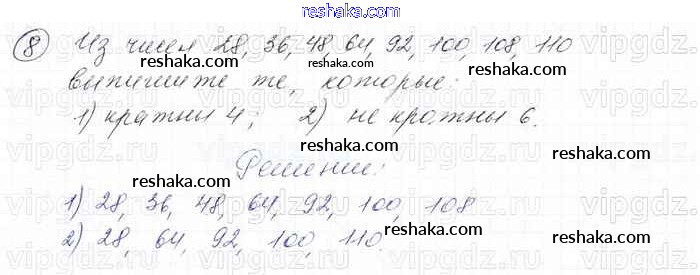 reshaka.com
8 Из чисел 28, 36, 48, 64, 92, 100, 108, 110
reshaka.com reshaka.com reshaka.com
выпишите те, которые:
reshaka.com
1) кратны 4; 2) не кратны 6.
reshaka.com
vipgdz.ru vipgdz.ru vipgdz.ru
Решение:
reshaka.com reshaka.com
1) 28, 36, 48, 64, 92, 100, 108
reshaka.com
2) 28, 64, 92, 100, 110
reshaka.com